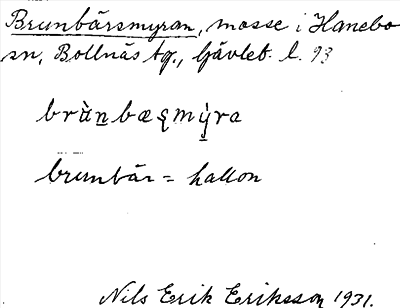 Brunbärsmyran, mosse i Hanebo
sn, Bollnäs tg., Gävleb. l. 93
brùn̲bæʂmỳ̲ra
brunbär = hallon
Nils Erik Eriksson 1931.